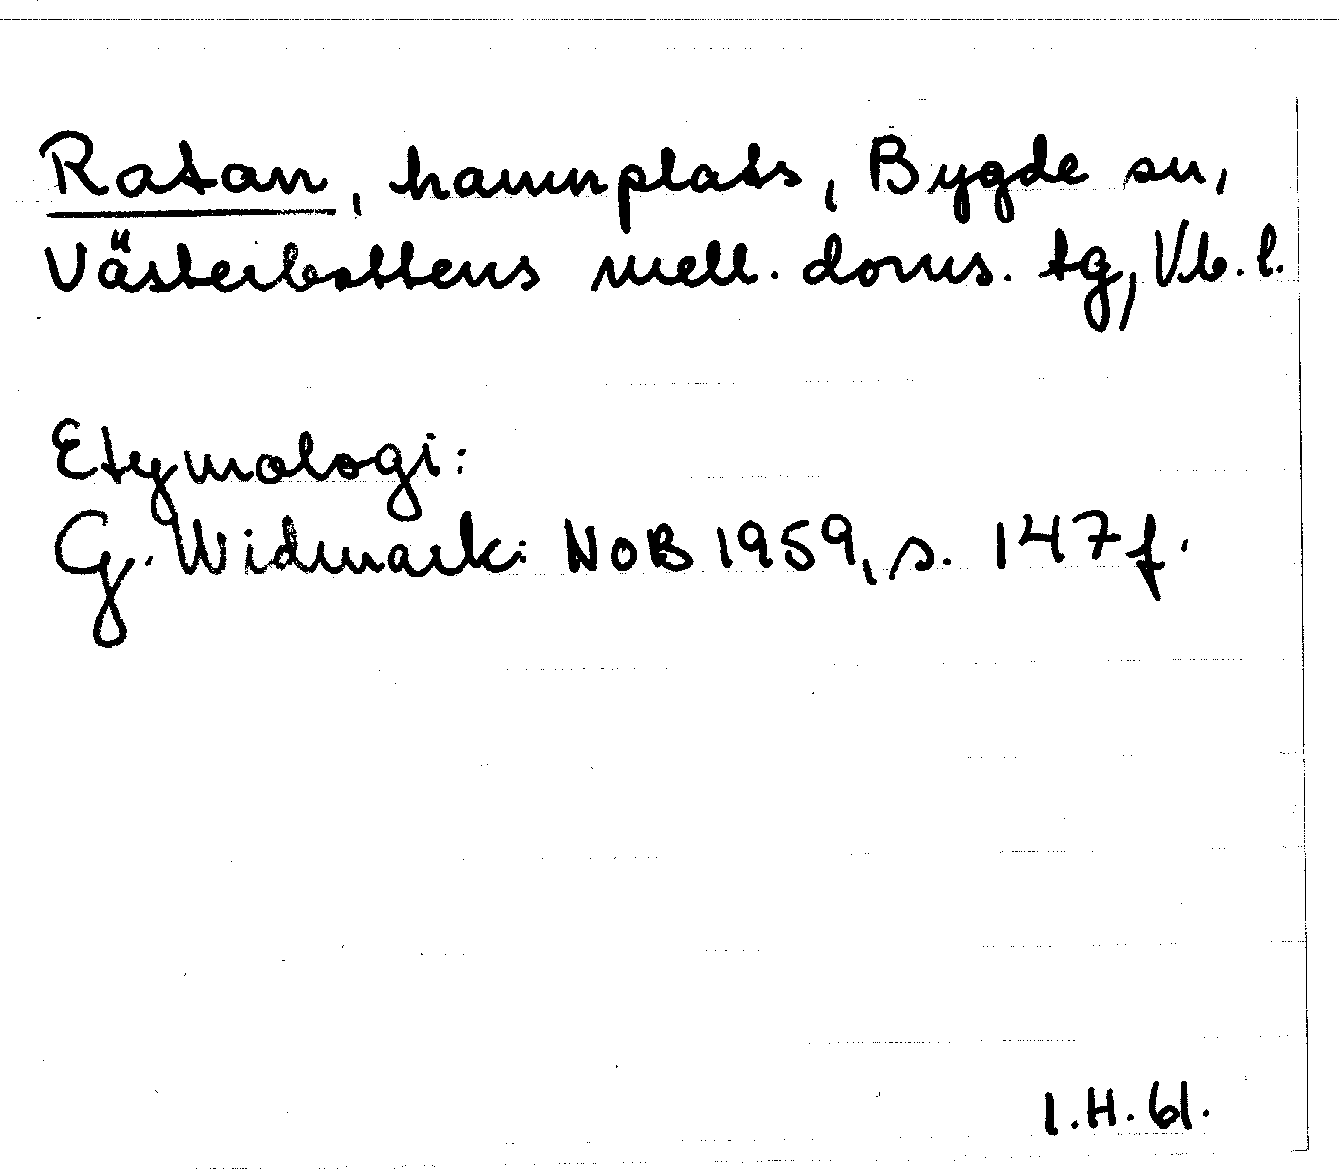 Ratan, hamnplats, Bygde sn,
Västerbottens mell. doms. tg, Vb. l.
Etymologi:
G. Widmark: NoB 1959, s. 147 f.
I.H. 61.